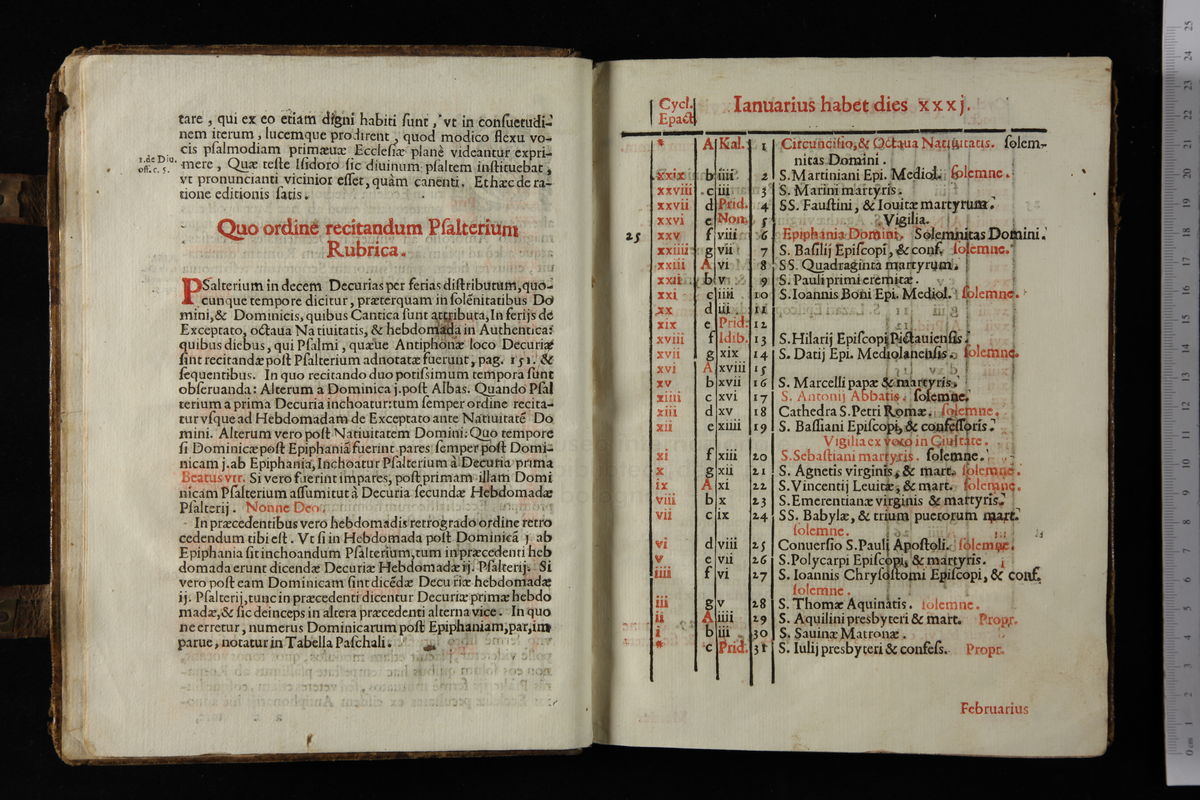 tare, qui ex eo etiam digni habiti sunt, vt in consuetudi-
nem iterum, lucemque prodirent, quod modico flexu vo-
cis psalmodiam primæuæ Ecclesiæ planè videantur expri-
1. de Diu.
off. c. 5.
mere, Quæ teste Isidoro sic diuinum psaltem instituebat,
vt pronuncianti vicinior esset, quàm canenti. Et hæc de ra-
tione editionis satis.
Quo ordine recitandum Psalterium
Rubrica.
PSalterium in decem Decurias per ferias distributum, quo-
cunque tempore dicitur, præterquam in solẽnitatibus Do
mini, & Dominicis, quibus Cantica sunt attributa, In ferijs de
Exceptato, octaua Natiuitatis, & hebdomada in Authentica:
quibus diebus, qui Psalmi, quæue Antiphonæ loco Decuriæ
sint recitandæ post Psalterium adnotatæ fuerunt, pag. 151. &
sequentibus. In quo recitando duo potissimum tempora sunt
obseruanda: Alterum a Dominica j. post Albas. Quando Psal
terium a prima Decuria inchoatur: tum semper ordine recita-
tur vsque ad Hebdomadam de Exceptato ante Natiuitatẽ Do
mini. Alterum vero post Natiuitatem Domini: Quo tempore
si Dominicæ post Epiphaniã fuerint pares semper post Domi-
nicam j. ab Epiphania, Inchoatur Psalterium à Decuria prima
Beatus vir. Si vero fuerint impares, post primam illam Domi
nicam Psalterium assumitut à Decuria secundæ Hebdomadæ
Psalterij. Nonne Deo.
In præcedentibus vero hebdomadis retrogrado ordine retro
cedendum tibi est. Vt si in Hebdomada post Dominicã j. ab
Epiphania sit inchoandum Psalterium, tum in præcedenti heb
domada erunt dicendæ Decuriæ Hebdomadæ ij. Psalterij. Si
vero post eam Dominicam sint dicẽdæ Decuriæ hebdomadæ
ij. Psalterij, tunc in præcedenti dicentur Decuriæ primæ hebdo
madæ, & sic deinceps in altera præcedenti alterna vice. In quo
ne erretur, numerus Dominicarum post Epiphaniam, par, im
parue, notatur in Tabella Paschali.
Cycl.
Epact.
Ianuarius habet dies xxxj.
* A Kal. 1 Circuncisio, & Octaua Natiuitatis. solem-
nitas Domini.
xxix b iiii 2 S. Martiniani Epi. Mediol. solemne.
xxviii c iii 3 S. Marini martyris.
xxvii d Prid. 4 SS. Faustini, & Iouitæ martyrum.
xxvi e Non. 5 Vigilia.
25 xxv f viii 6 Epiphania Domini. Solemnitas Domini.
xxiiii g vii 7 S. Basilij Episcopi, & conf. solemne.
xxiii A vi 8 SS. Quadraginta martyrum.
xxii b v 9 S. Pauli primi eremitæ.
xxi c iiii 10 S. Ioannis Boni Epi. Mediol. solemne.
xx d iii 11
xix e Prid. 12
xviii f Idib. 13 S. Hilarij Episcopi Pictauiensis.
xvii g xix 14 S. Datij Epi. Mediolanensis. solemne.
xvi A xviii 15
xv b xvii 16 S. Marcelli papæ & martyris.
xiiii c xvi 17 S. Antonij Abbatis. solemne.
xiii d xv 18 Cathedra S. Petri Romæ. solemne.
xii e xiiii 19 S. Bassiani Episcopi, & confessoris.
Vigilia ex voto in Ciuitate.
xi f xiii 20 S. Sebastiani martyris. solemne.
x g xii 21 S. Agnetis virginis, & mart. solemne.
ix A xi 22 S. Vincentij Leuitæ, & mart. solemne.
viii b x 23 S. Emerentianæ virginis & martyris.
vii c ix 24 SS. Babylæ, & trium puerorum mart.
solemne.
vi d viii 25 Conuersio S. Pauli Apostoli. solemne.
v e vii 26 S. Polycarpi Episcopi, & martyris.
iiii f vi 27 S. Ioannis Chrysostomi Episcopi, & conf.
solemne.
iii g v 28 S. Thomæ Aquinatis. solemne.
ii A iiii 29 S. Aquilini presbyteri & mart. Propr.
i b iii 30 S. Sauinæ Matronæ.
* c Prid. 31 S. Iulij presbyteri & confess. Propr.
Februarius